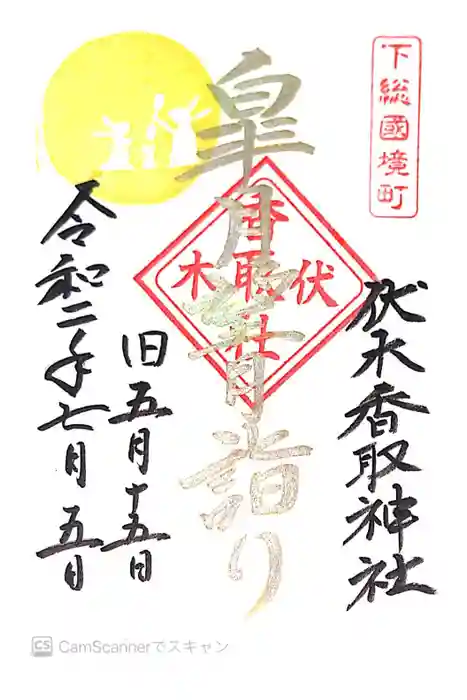 下総國境町
伏木香取神社
伏木
香取社
皐月
月詣り
旧五月十五日
令和二年七月五日
CS CamScannerでスキャン